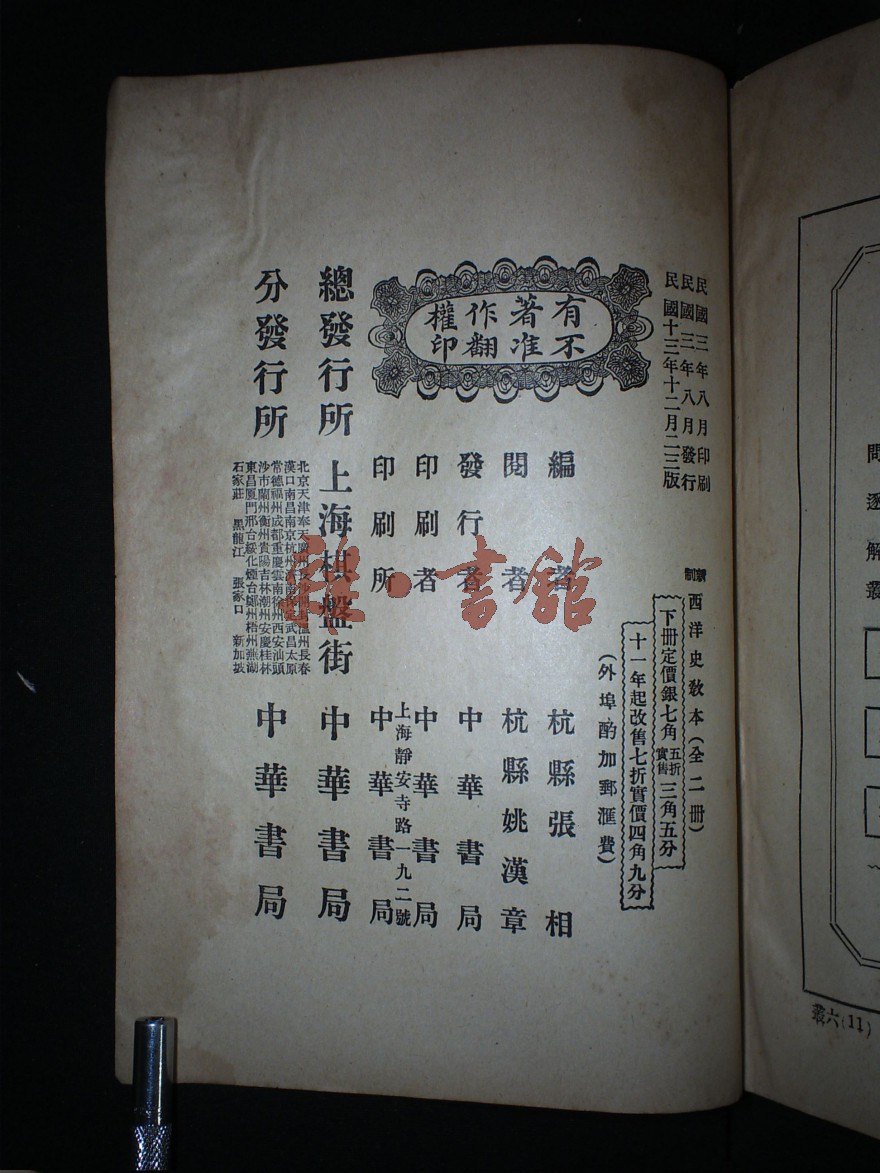 民國三年八月印刷
民國三年八月發行
民國十三年十二月二三版
新制
西洋史敎本(全二冊)
下冊定價銀七角
五折實售
三角五分
十一年起改售七折實價四角九分
(外埠酌加郵滙費)
有著作權
不准翻印
編者 杭縣張相
閱者 杭縣姚漢章
發行者 中華書局
印刷者 中華書局
上海靜安寺路一九二號
印刷所 中華書局
總發行所 上海棋盤街 中華書局
分發行所
北京天津奉天
長春
漢口南昌南京杭州
武昌太原
常德福州成都重慶雲南徐州西安汕頭
沙市蘭州衡州貴陽吉林潮州安慶桂林
東昌厦門邢台綏化煙台鄭州梧州蕪湖
石家莊 黑龍江 張家口 新加坡
中華書局
雅·書館
問
逐
解
叢
叢六(11)